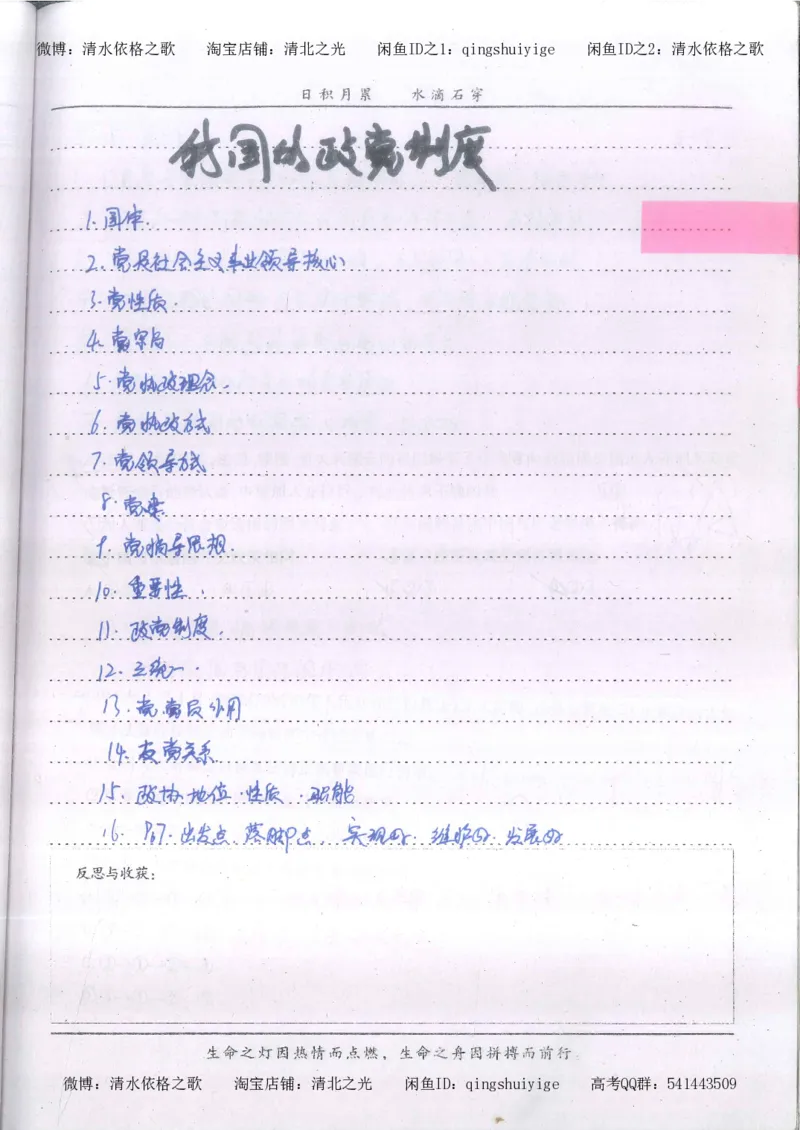 微博：清水依格之歌 淘宝店铺：清北之光 闲鱼ID之1：qingshuiyige 闲鱼ID之2：清水依格之歌
日积月累 水滴石穿
我国的政党制度
1.国体.
2.党是社会主义事业领导核心
3.党性质
4.党宗旨
5.党执政理念.
6.党执政方式
7.党领导方式
8.党案
9.党指导思想
10.重要性.
11.政党制度.
12.三统一.
13.党党员作用
14.友党关系
15.政协地位.性质.职能
16.P67.出发点.落脚点,实现好.维护好.发展好
反思与收获：
生命之灯因热情而点燃，生命之舟因拼搏而前行。
微博：清水依格之歌 淘宝店铺：清北之光 闲鱼ID：qingshuiyige 高考QQ群：541443509